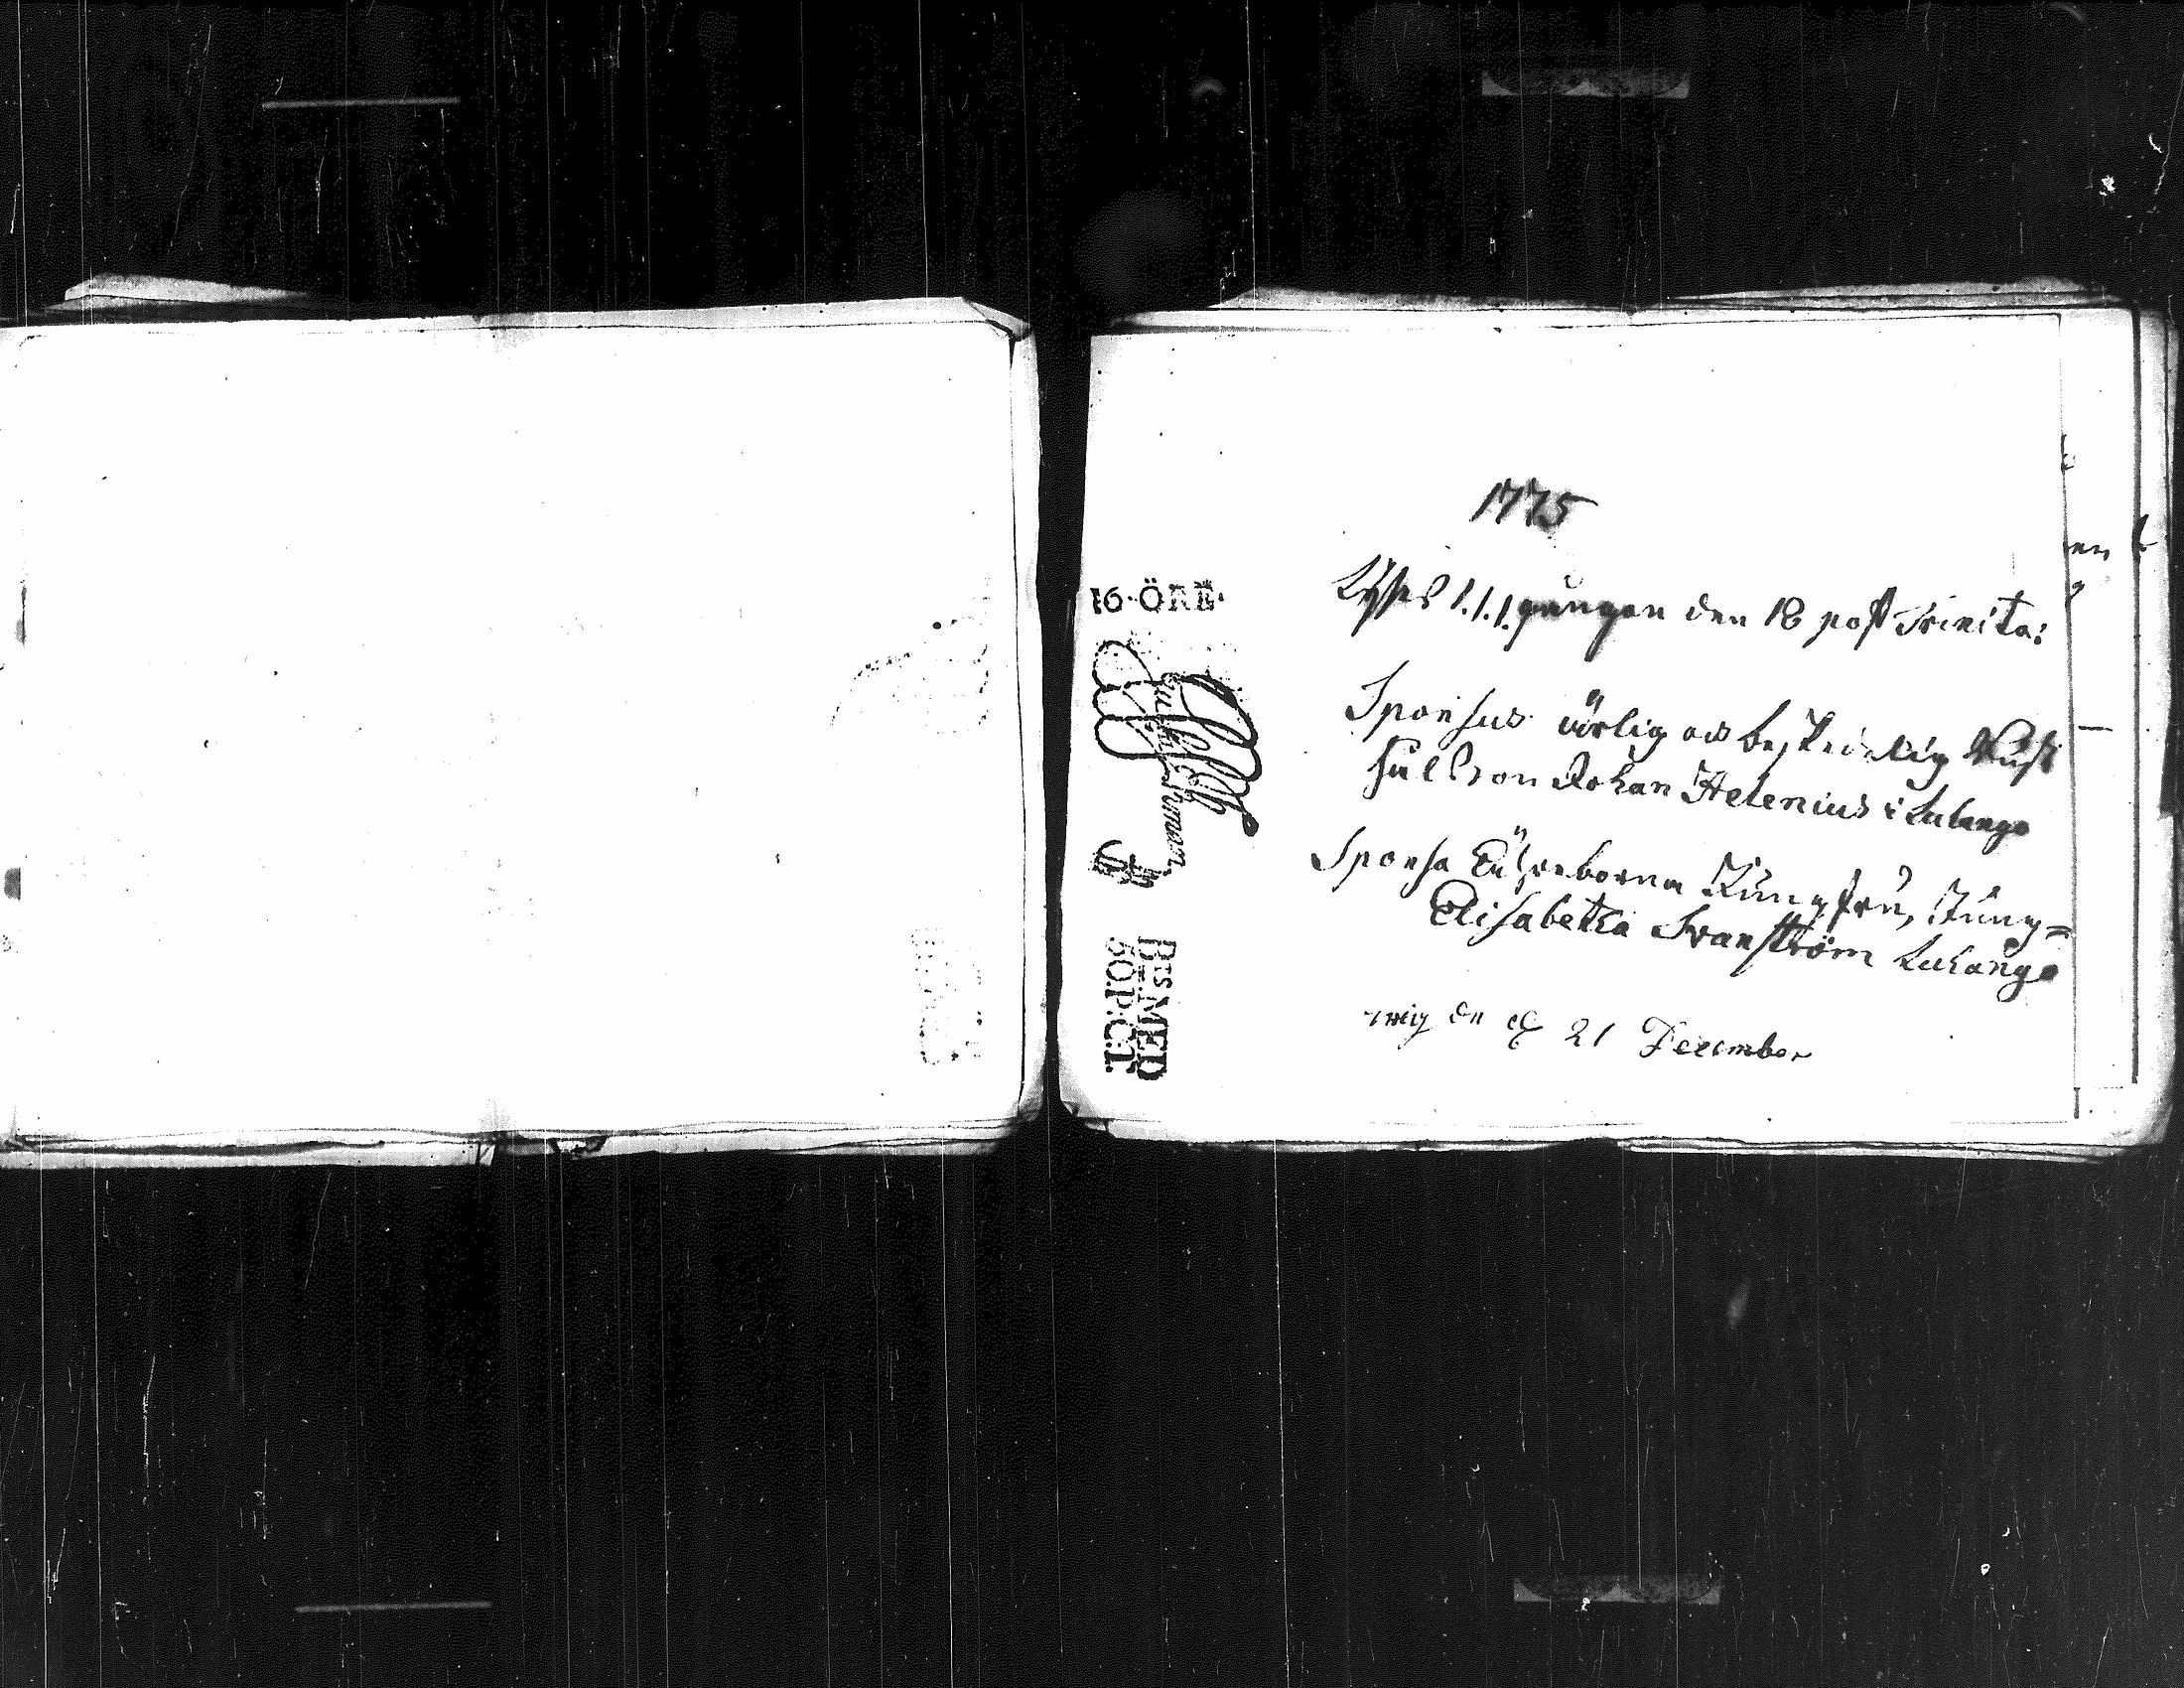 1775
16·ÖRE·
Lyses 1.1.1. gången den 18 post Trinita:
Sponsus ärlig och beskedelig Rust
hålls son Johan Helenius i Luhango
Sponsa Ähreborna Jungfru, Jung=
Elisabetha Svanström Luhango
wig den 21 December
BTS MED
50.P:C:T.